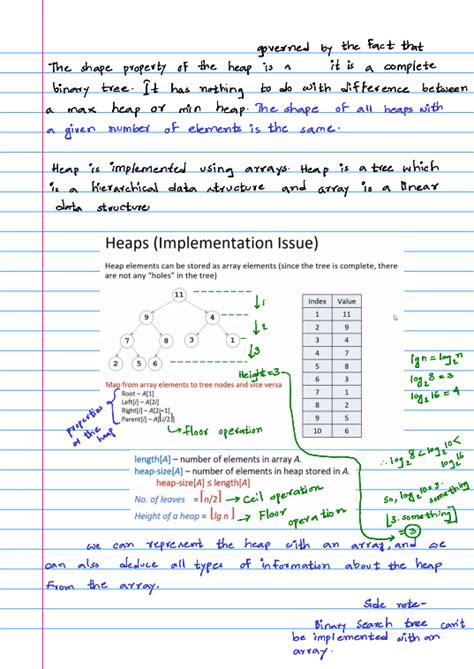 governed by the fact that
The shape property of the heap is ^ it is a complete
binary tree. It has nothing to do with difference between
a max heap or min heap. The shape of all heaps with
a given number of elements is the same.
Heap is implemented using arrays. Heap is a tree which
is a hierarchical data structure and array is a linear
data structure
Heaps (Implementation Issue)
Heap elements can be stored as array elements (since the tree is complete, there
are not any "holes" in the tree)
11
9 4
7 8 3 1
2 5 6 5
↓1
↓2
↓3
Height=3
Index Value
1 11
2 9
3 4
4 7
5 8
6 3
7 1
8 2
9 5
10 6
lg n = log₂n
log₂8 = 3
log₂16 = 4
Map from array elements to tree nodes and vice versa
Root – A[1]
Left[i] – A[2i]
Right[i] – A[2i+1]
Parent[i] – A[⌊i/2⌋]
properties
of the
heap
→ floor operation
length[A] – number of elements in array A.
heap-size[A] – number of elements in heap stored in A.
heap-size[A] ≤ length[A]
No. of leaves = ⌈n/2⌉ → Ceil operation
Height of a heap = ⌊lg n⌋ → Floor
operation
∴ log₂8 < log₂10 <
log₂16
so, log₂10 = 3.
something
⌊3.something⌋
= 3
we can represent the heap with an array, and we
can also deduce all types of information about the heap
from the array.
Side note-
Binary Search tree can't
be implemented with an
array.